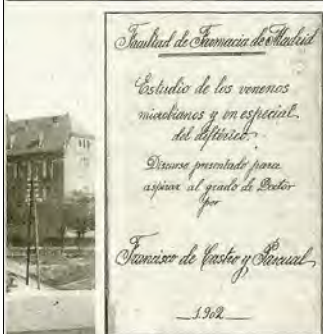 Facultad de Farmacia de Madrid
Estudio de los venenos
microbianos y en especial
del diftérico.
Discurso presentado para
aspirar al grado de Doctor
por
Francisco de Castro y Pascual
1902